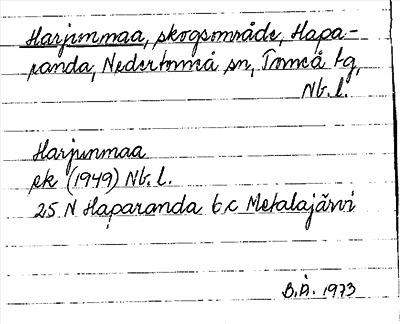 Harjunmaa, skogsområde, Hapa-
randa, Nedertorneå sn, Torneå tg,
Nb. l.
Harjunmaa
ek (1949) Nb. l.
25 N Haparanda 6 c Metalajärvi
B.Å. 1973